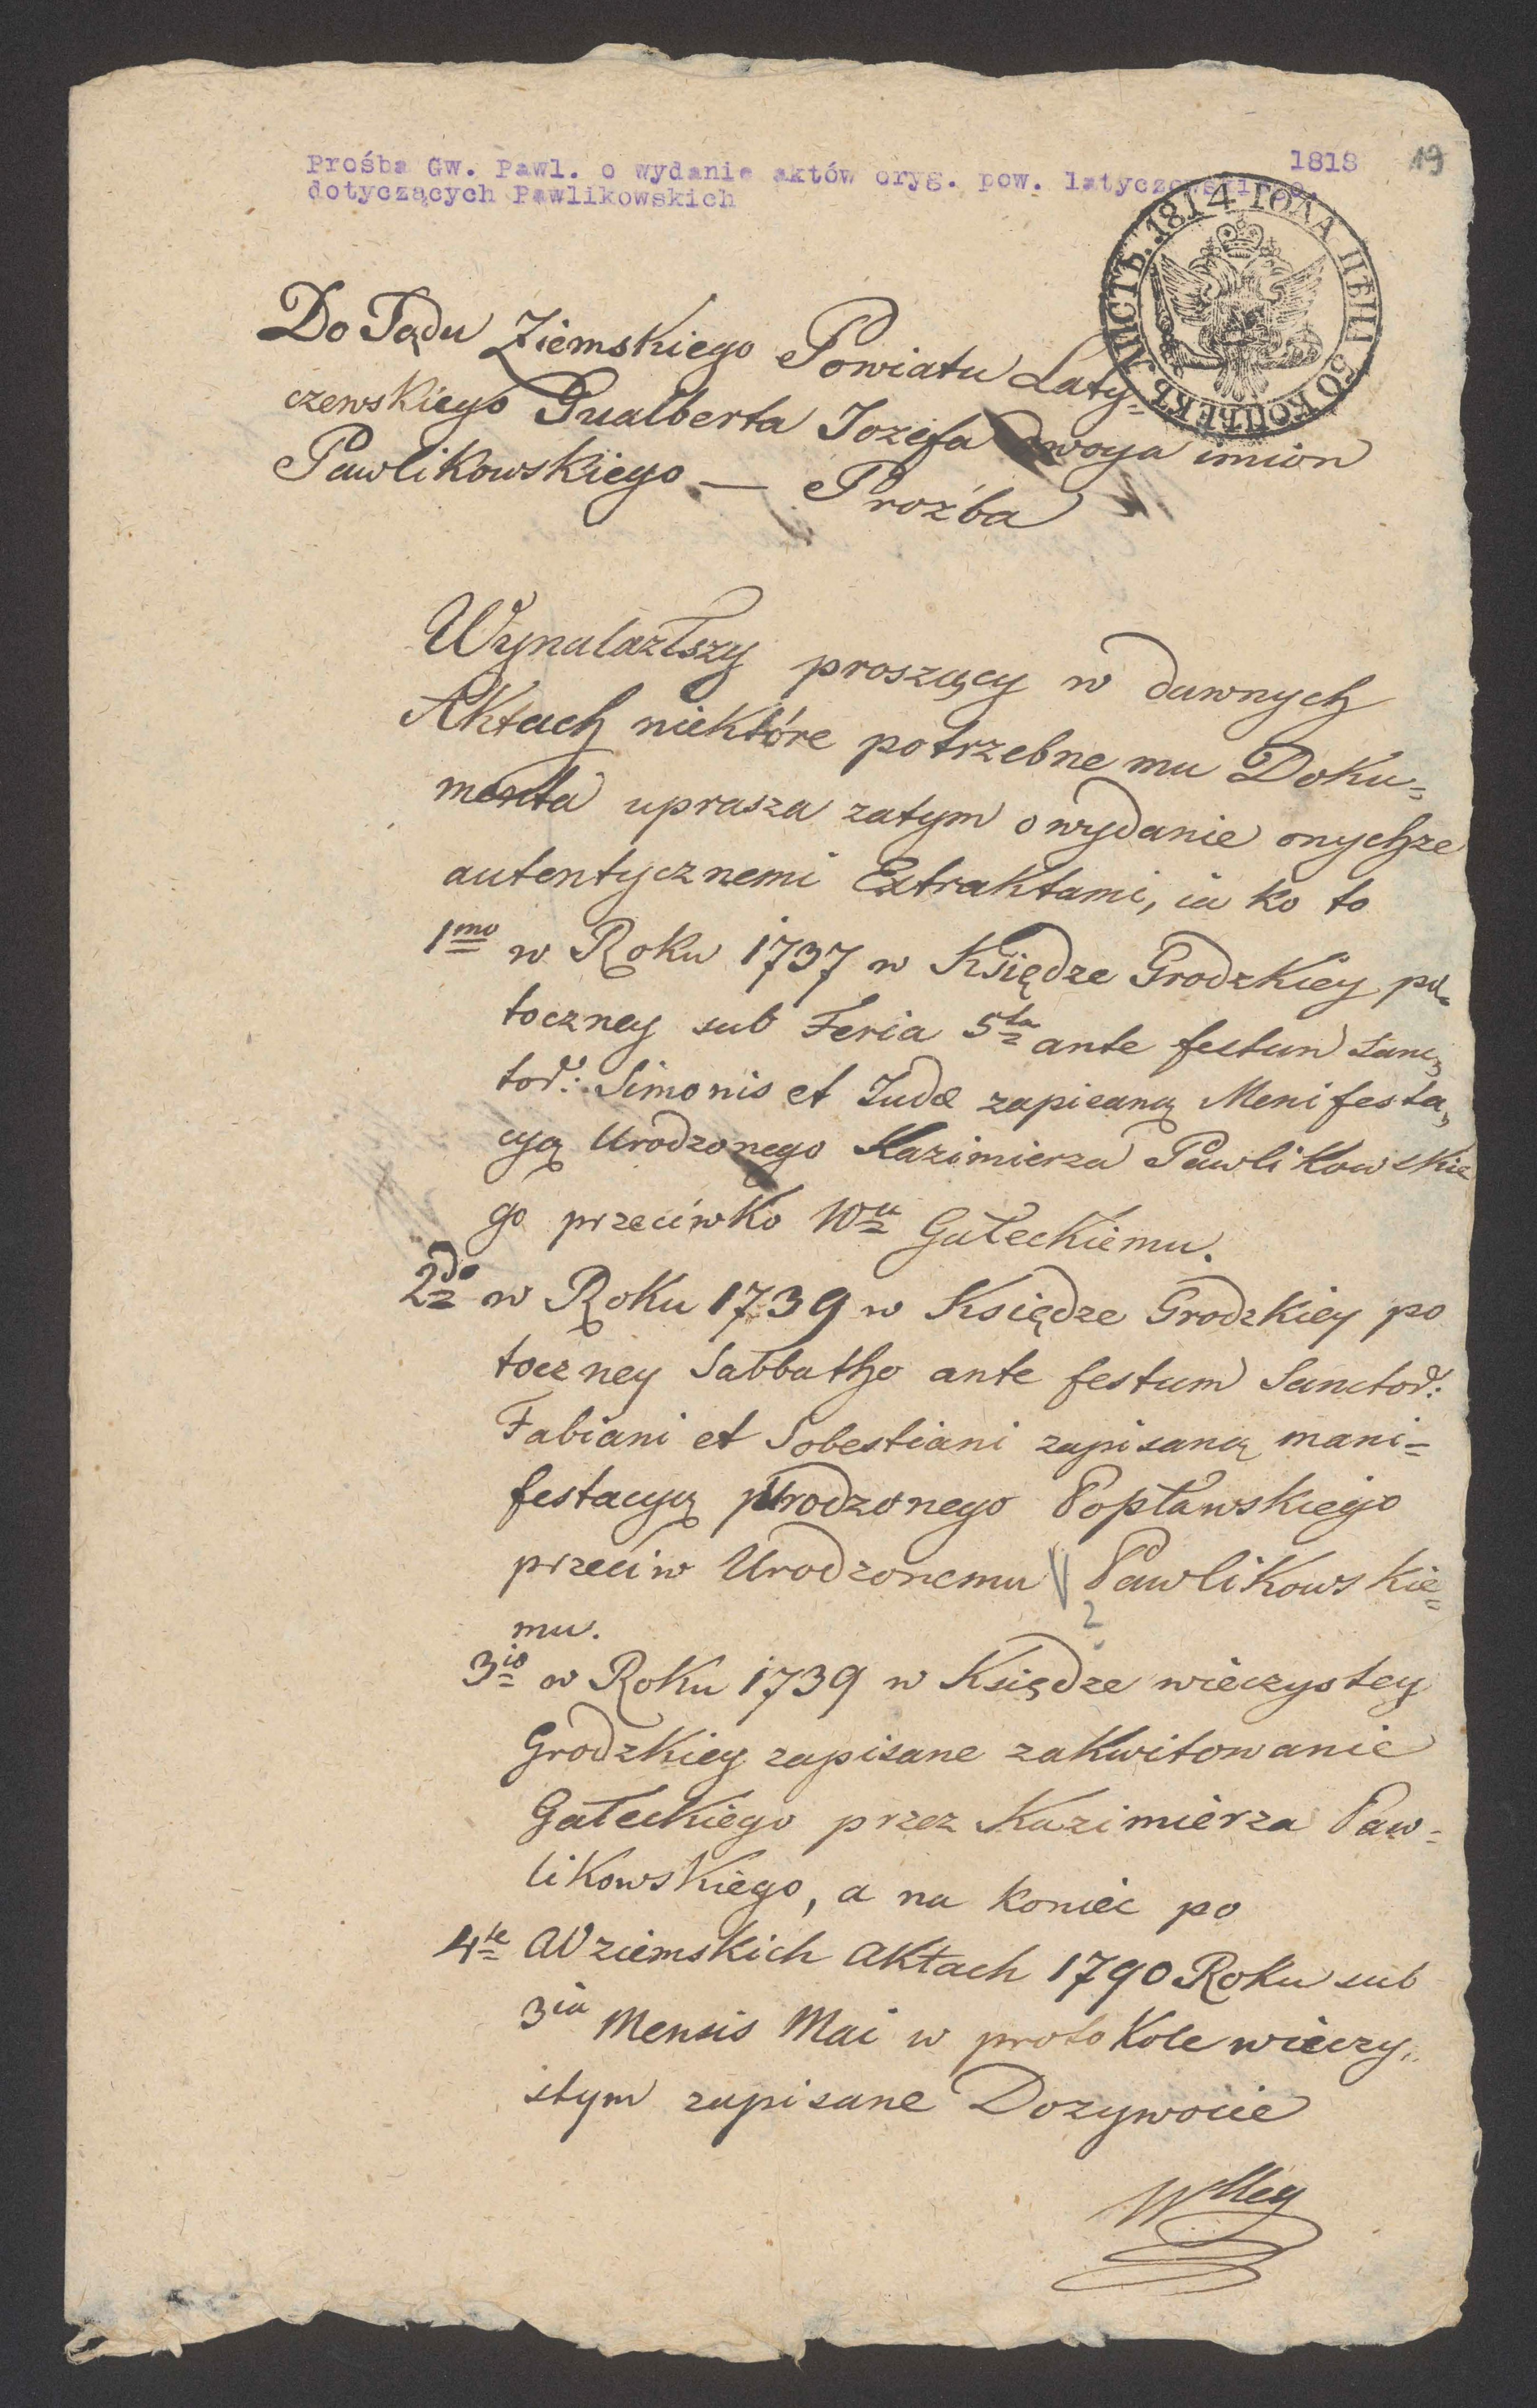 1818
19
Prośba Gw. Pawl. o wydanie aktów oryg. pow. latyczowskiego
dotyczących Pawlikowskich
ЛИСТЪ. 1814 ГОДА ЦѢН 50 КОПѢЕКЪ
Do Sądu Ziemskiego Powiatu Laty=
czewskiego Gualberta Jozefa dwoyga imion
Pawlikowskiego — Proźba
Wynalazłszy proszący w dawnych
Aktach niektóre potrzebne mu Doku=
menta uprasza zatym o wydanie onychże
autentycznemi Extraktami, ia ko to
1mo w Roku 1737 w Księdze Grodzkiey po=
toczney sub Feria 5ta ante festum Sanc=
tor: Simonis et Judæ zapisaną Menifesta=
cyą Urodzonego Kazimierza Pawlikowskie
go przeciwko Wu Gałeckiemu.
2do w Roku 1739 w Księdze Grodzkiey po
toczney Sabbatho ante festum Sanctor:
Fabiani et Sobestiani zapisaną mani=
festacyą Urodzonego Popławskiego
przeciw Urodzonemu Pawlikowskie=
2
mu.
3io w Roku 1739 w Księdze wieczystey
Grodzkiey zapisane zakwitowanie
Gałeckiego przez Kazimierza Paw=
likowskiego, a na koniec po
4te W ziemskich Aktach 1790 Roku sub
3ia Mensis Mai w protokole wieczy=
stym zapisane Dozywocie
WMey